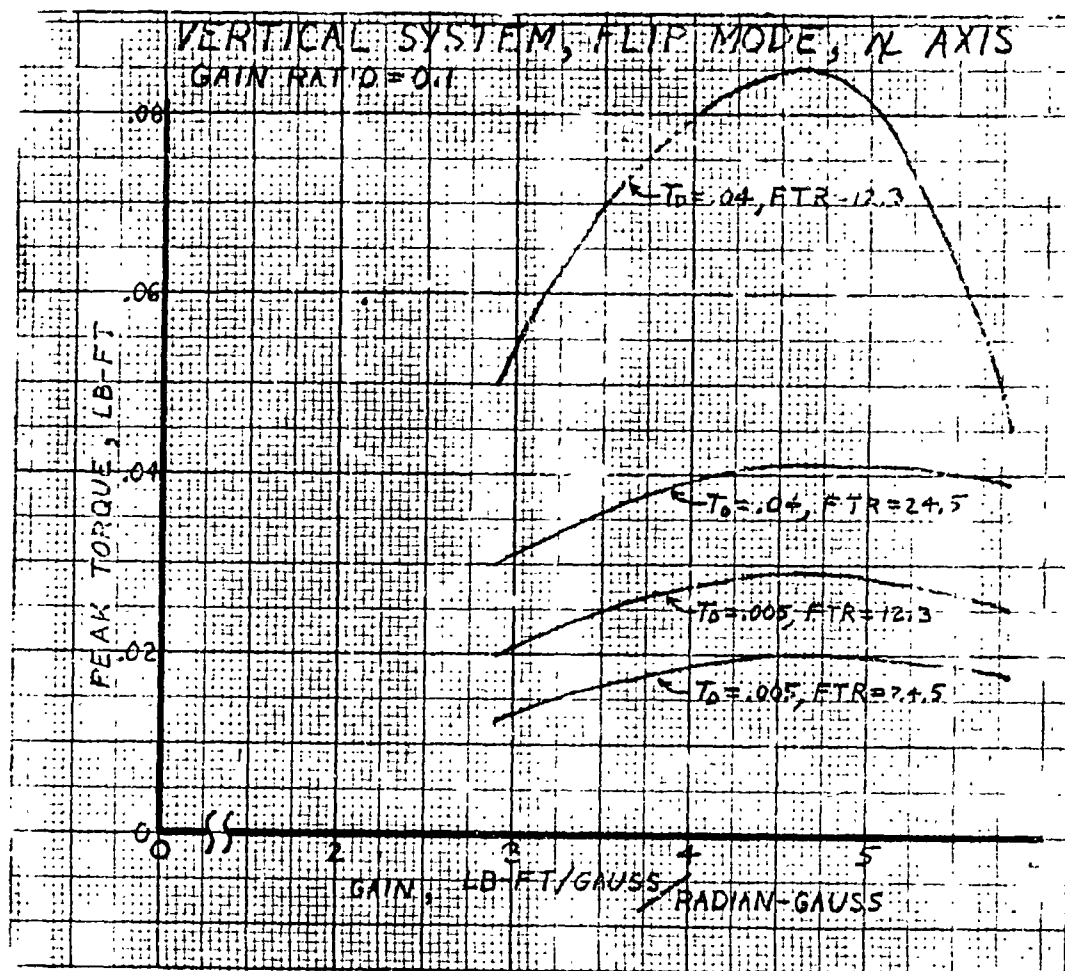 VERTICAL SYSTEM, FLIP MODE, X AXIS
GAIN RATIO = 0.1
.08
T_D = .04, FTR = 12.3
.06
PEAK TORQUE, LB-FT
.04
T_D = .04, FTR = 24.5
T_D = .005, FTR = 12.3
.02
T_D = .005, FTR = 24.5
0
0 2 3 4 5
GAIN, LB-FT/GAUSS/RADIAN-GAUSS